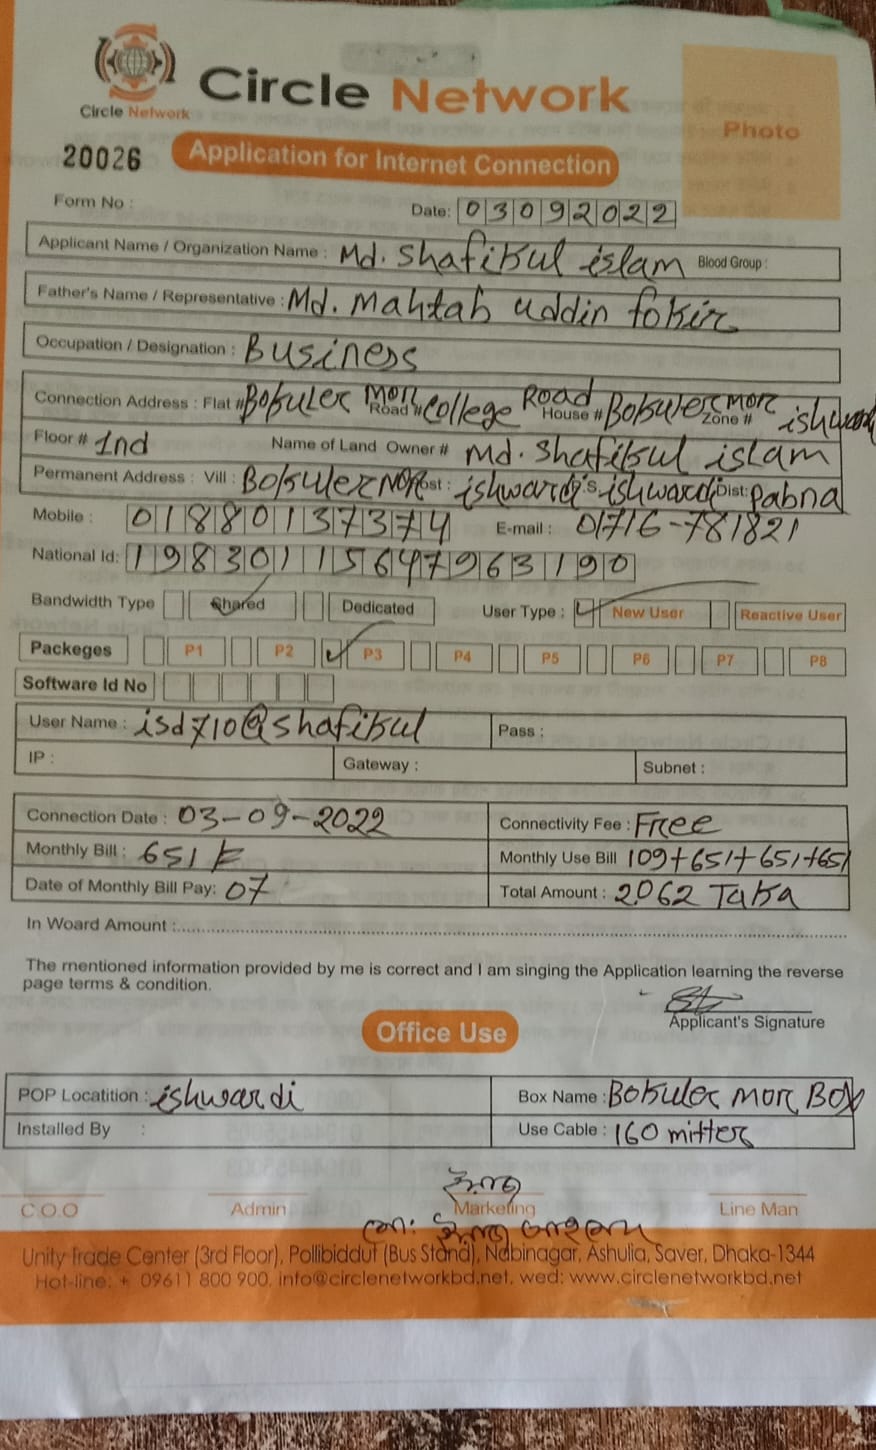 Circle Network
Circle Network
Photo
20026
Application for Internet Connection
Form No :
Date: 03092022
Applicant Name / Organization Name : Md. Shafikul islam Blood Group :
Father's Name / Representative : Md. Mahtab uddin fokir
Occupation / Designation : Business
Connection Address : Flat # Bokuler Mor Road # College Road House # Bokuler mor Zone # ishwardi
Floor # 1nd Name of Land Owner # Md. Shafikul islam
Permanent Address : Vill : Bokuler Mor ost : ishwardi S ishwardi Dist: Pabna
Mobile : 01880137374 E-mail : 01716-781821
National Id: 19830115647963190
Bandwidth Type Shared Dedicated User Type : New User Reactive User
Packeges P1 P2 P3 P4 P5 P6 P7 P8
Software Id No
User Name : isd710@shafikul Pass :
IP : Gateway : Subnet :
Connection Date : 03-09-2022 Connectivity Fee : Free
Monthly Bill : 651 Monthly Use Bill 109+651+651+651
Date of Monthly Bill Pay: 07 Total Amount : 2062 Taka
In Woard Amount :
The mentioned information provided by me is correct and I am singing the Application learning the reverse
page terms & condition.
Applicant's Signature
Office Use
POP Locatition : ishwardi Box Name : Bokuler mor Box
Installed By : Use Cable : 160 mitter
C.O.O Admin Marketing Line Man
Unity Trade Center (3rd Floor), Pollibiddut (Bus Stand), Nabinagar, Ashulia, Saver, Dhaka-1344
Hot-line: + 09611 800 900, info@circlenetworkbd.net, wed: www.circlenetworkbd.net